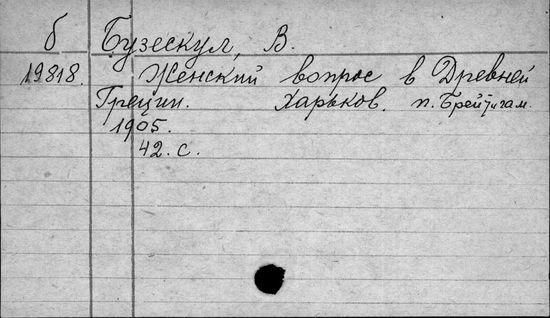 б Бузескул, В.
19818. Женский вопрос в Древней
Греции. Харьков. п. Брейтигам.
1905.
42. с.